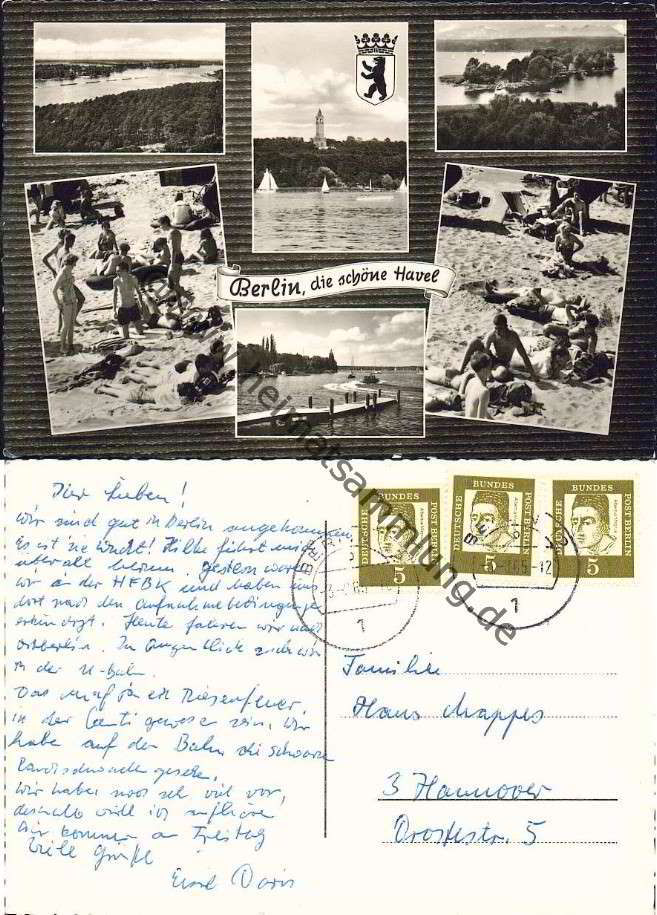 Berlin, die schöne Havel
www.heimatsammlung.de
Ihr Lieben!
wir sind gut in Berlin angekommen
Es ist 'ne Wucht! Hilke führt uns
überall herum. gestern waren
wir in der HFBK und haben uns
dort nach den Aufnahmebedingungen
erkundigt. Heute fahren wir nach
Ostberlin. Im Augenblick sitzen wir
in der U-Bahn.
Das muß ja ein Riesenfeuer
in der gewesen sein, wir
habe auf der Bahn die schwarze
gesehen.
Wir haben noch sehr viel vor,
deshalb will ich aufhören
Wir kommen am Freitag
Viele Grüße
Eure Doris
DEUTSCHE BUNDES POST BERLIN
5
DEUTSCHE BUNDES POST BERLIN
5
DEUTSCHE BUNDES POST BERLIN
5
BERLIN
1
1
Familie
Hans Mappes
3 Hannover
Drostestr. 5